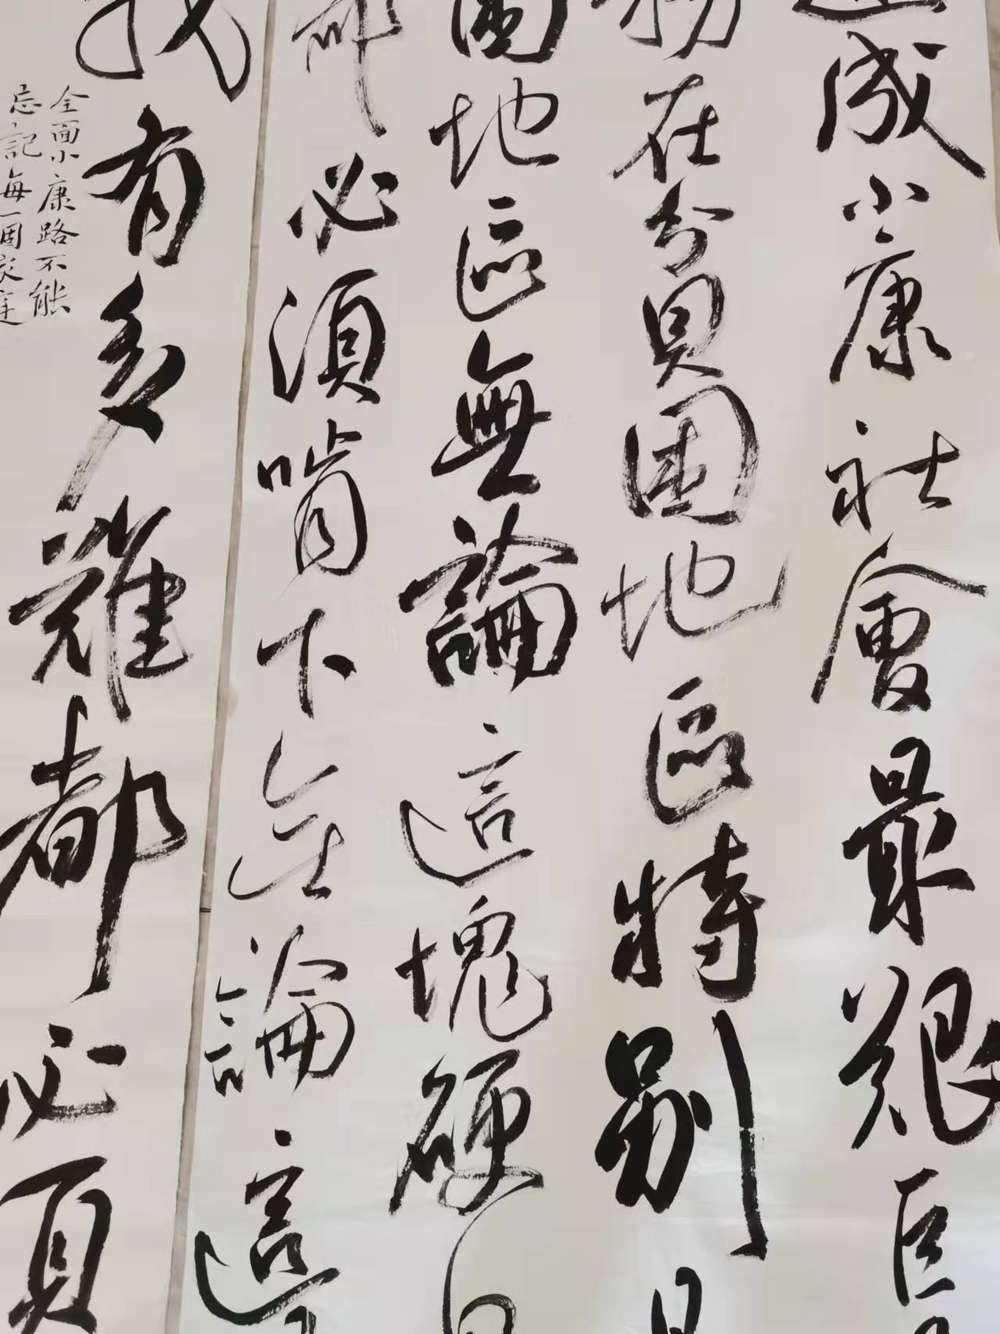 成小康社會最艱巨
務在貧困地區特別
困地區無論這塊硬
都必須啃下無論這
我有多難都必須
全面小康路不能
忘記每一個家庭